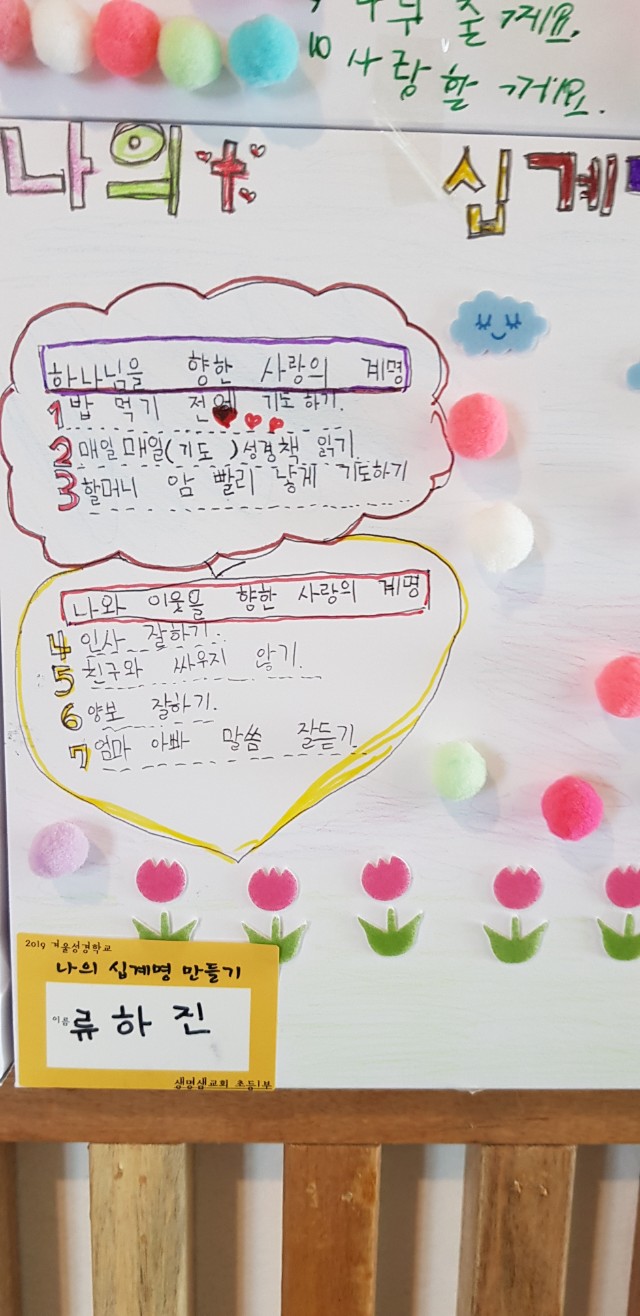 줄게요.
10 사랑할게요.
나의 십계
하나님을 향한 사랑의 계명
1 밥 먹기 전에 기도하기.
2 매일매일(기도)성경책 읽기.
3 할머니 암 빨리 낳게 기도하기
나와 이웃을 향한 사랑의 계명
4 인사 잘하기.
5 친구와 싸우지 않기.
6 양보 잘하기.
7 엄마 아빠 말씀 잘듣기.
2019 겨울성경학교
나의 십계명 만들기
이름 류하진
생명샘교회 초등1부